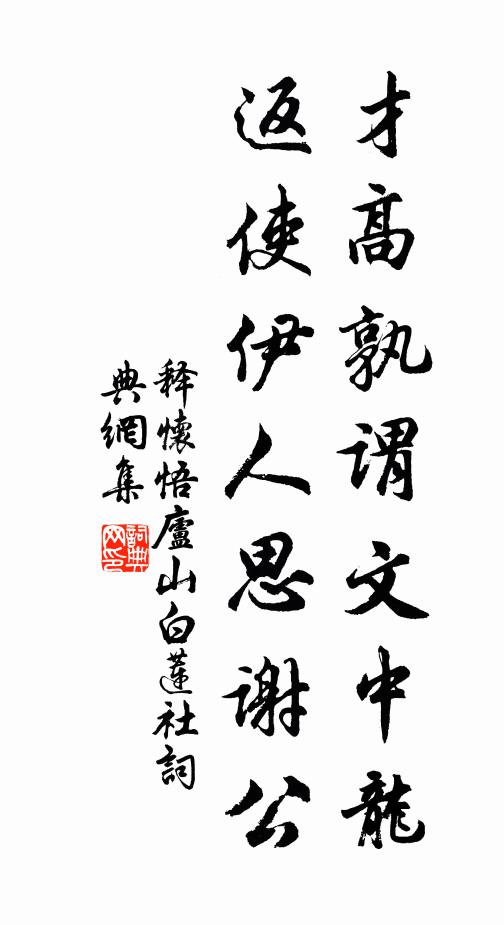 才高孰谓文中龍
返使伊人思谢公
释懷悟廬山白蓮社詞
典網集
詞典
网印